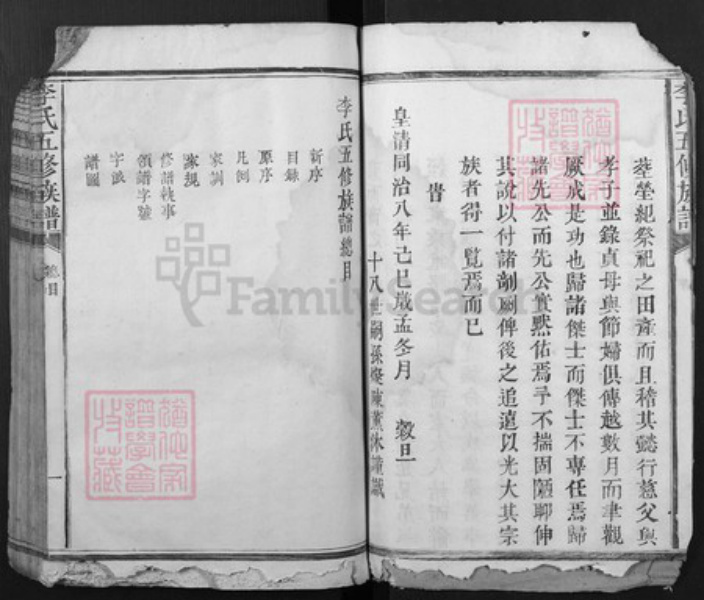 李氏五修族譜
塋塋紀祭祀之田產而且稽其懿行慈父與
孝子並錄貞母與節婦俱傳越數月而聿觀
厥成是功也歸諸傑士而傑士不專任焉歸
諸先公而先公實默佑焉予不揣固陋聊伸
其說以付諸剞劂俾後之追遠以光大其宗
族者得一覽焉而已
皇清同治八年己巳歲孟冬月 穀旦
十八世嗣孫 薰沐謹識
李氏五修族譜總目
新序
目錄
原序
凡例
家訓
家規
修譜執事
領譜字號
字派
譜圖
李氏五修族譜
總目
一
FamilySearch